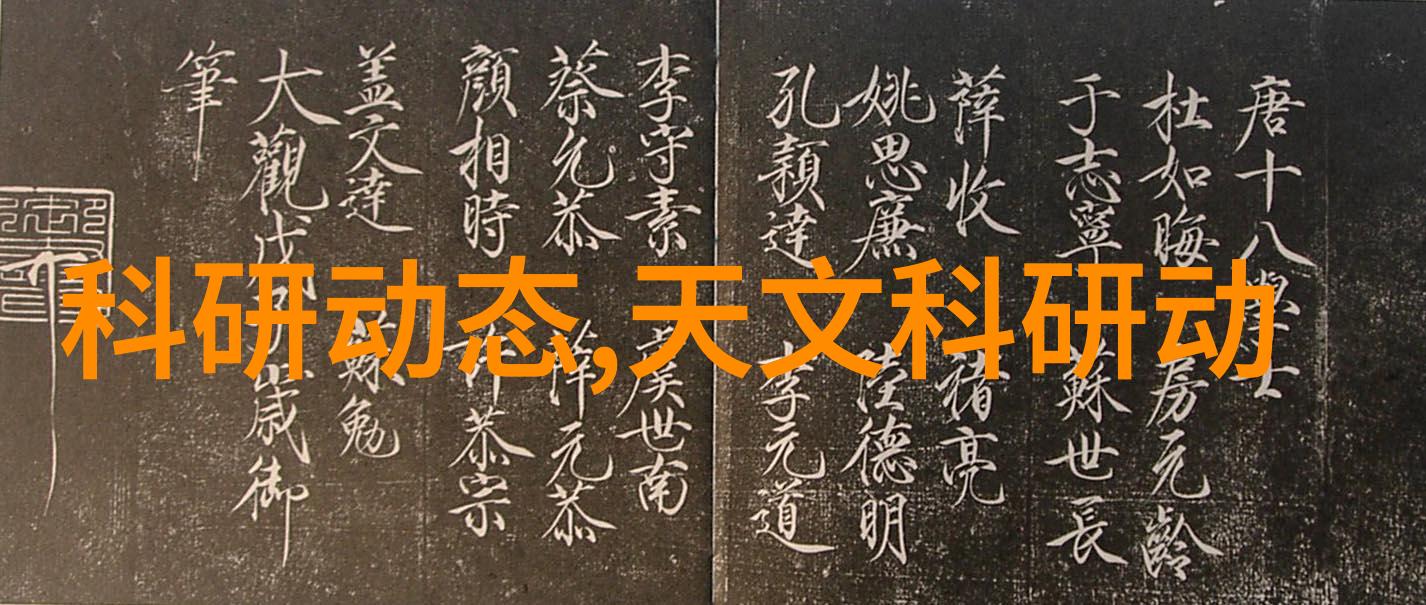 唐十八學士
杜如晦 房元齡
于志寧 蘇世長
薛收 褚亮
姚思廉 陸德明
孔穎達 李元道
李守素 虞世南
蔡允恭 薛元恭
顏相時 許恭宗
盖文達 蘇勉
大觀戊子歲御
筆
科研动态,天文科研动